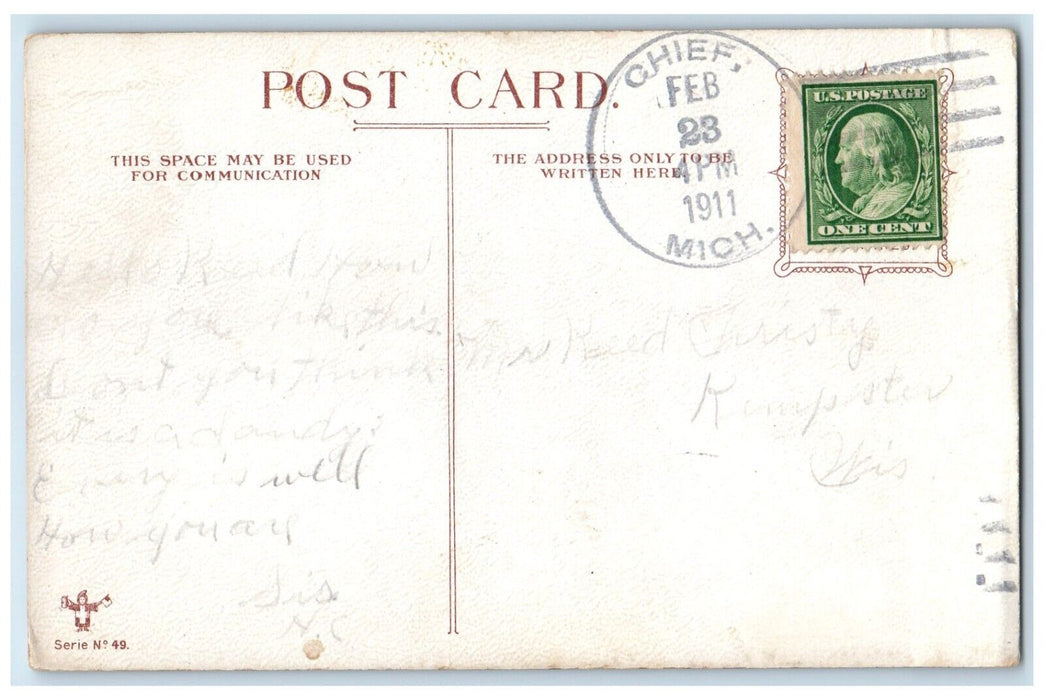 POST CARD.
THIS SPACE MAY BE USED
FOR COMMUNICATION
THE ADDRESS ONLY TO BE
WRITTEN HERE.
CHIEF,
FEB
23
4 PM
1911
MICH.
U.S. POSTAGE
ONE CENT
Hello Reed How
do you like this
dont you think
it is a dandy
is well
How you are
Sis
Reed Christy
Kempster
Wis
Serie Nº 49.